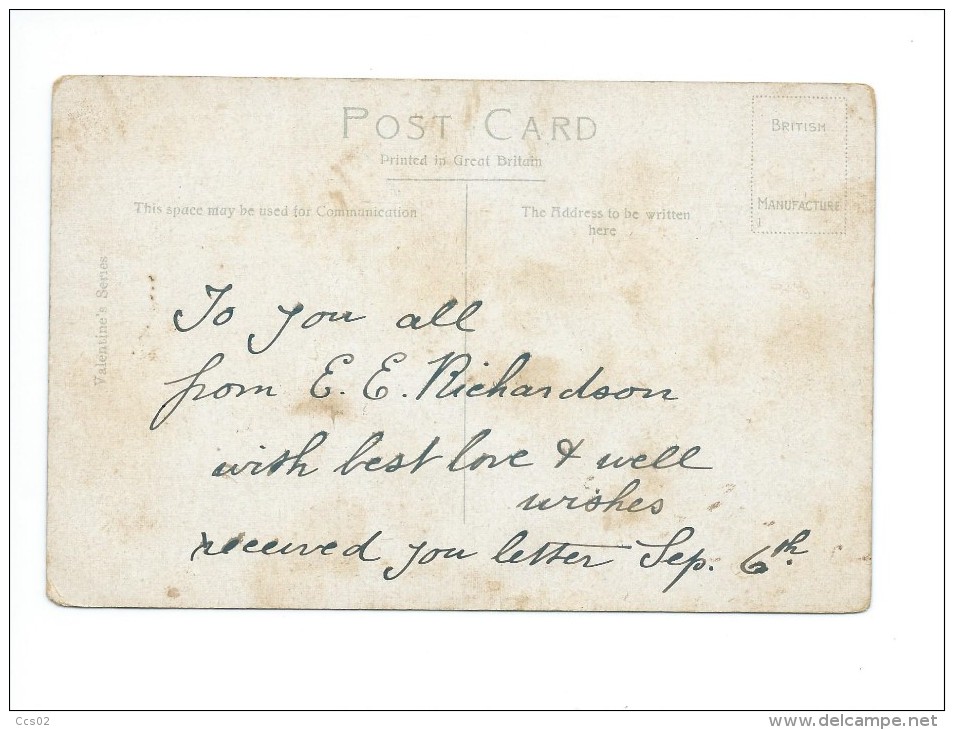 POST CARD
Printed in Great Britain
BRITISH
MANUFACTURE
This space may be used for Communication
The Address to be written
here
Valentine's Series
To you all
from E. E. Richardson
with best love & well
wishes
received you letter Sep. 6th.
Ccs02
www.delcampe.net